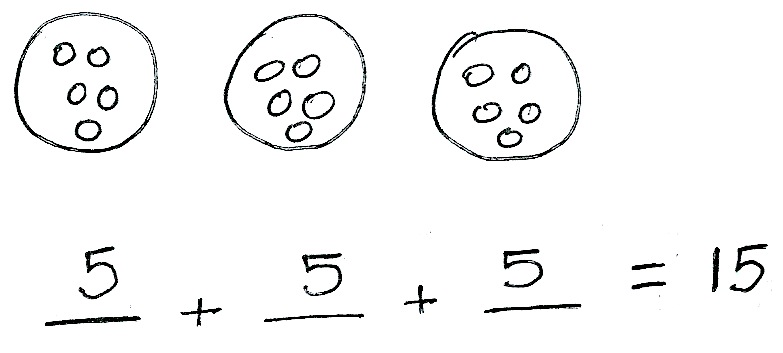 5 + 5 + 5 = 15